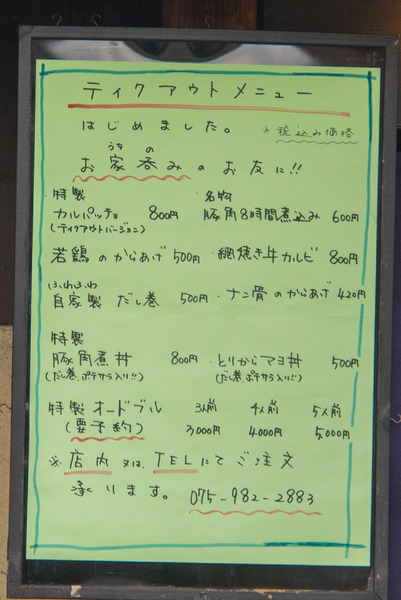 ティクアウトメニュー
はじめました。 ※税込み価格
お家呑みのお友に!!
うちの
特製 名物
カルパッチョ 800円 豚角8時間煮込み 600円
(ティクアウトバージョン)
若鶏のからあげ 500円 ・網焼き牛カルビ 800円
ふわふわ
自家製だし巻 500円 ・ナンコツ骨のからあげ 420円
特製
豚角煮丼 800円 ・とりからマヨ丼 500円
(だし巻、ポテサラ入り!!) (だし巻、ポテサラ入り!!)
特製オードブル 3人前 4人前 5人前
(要予約) 3000円 4000円 5,000円
※店内又は、TELにてご注文
承ります。 075-982-2883